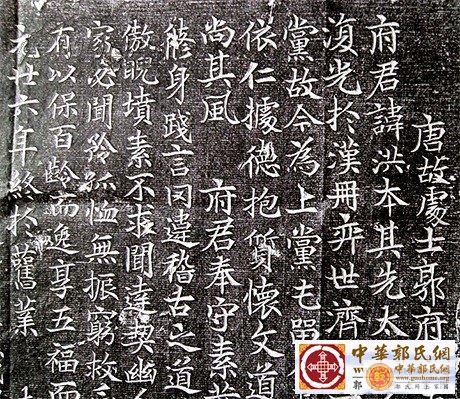 唐故處士郭府
府君諱洪本其先太
復光於漢冊弈世齊
黨故今為上黨
依仁據德抱質懷文道
尚其風　府君奉守素
脩身踐言罔違稽古之道
傲睨墳素不求聞達契幽
家必聞矜孤恤無振窮救
有以保百齡而享五福
元廿六年終於舊業
中華郭氏網